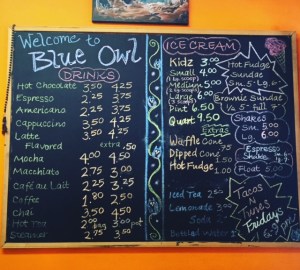 Welcome to
Blue Owl
DRINKS
Hot Chocolate 3.50 4.25
Espresso 2.75
Americano 2.25 3.75
Cappuccino 3.50 4.25
Latte 3.50 4.25
Flavored extra .50
Mocha 4.00 4.50
Macchiato 2.75 3.00
Café au Lait 2.25 3.25
Coffee 1.80 2.50
Chai 3.50 4.50
Hot Tea 2.00 bag 3.00 pot
Steamer 2.75 3.50
ICE CREAM
Kidz 3.00
Small 4.00
(1 big scoop)
Medium 5.00
(2 scoops)
Large 6.00
(3 scoops)
Pint 6.50
Quart 9.50
Extras
Waffle Cone
Dipped Cone
Hot Fudge 1.00
Iced Tea
Lemonade 3.00
Soda
Bottled Water 1
Hot Fudge
Sundae
Sm. 5 Lg. 6
Brownie Sundae
1/2 5 Full
Shakes
Sm. 5.00
Lg. 6.00
Espresso
Shake
Float 5.00
Tacos
Tunes
Fridays
6-9pm